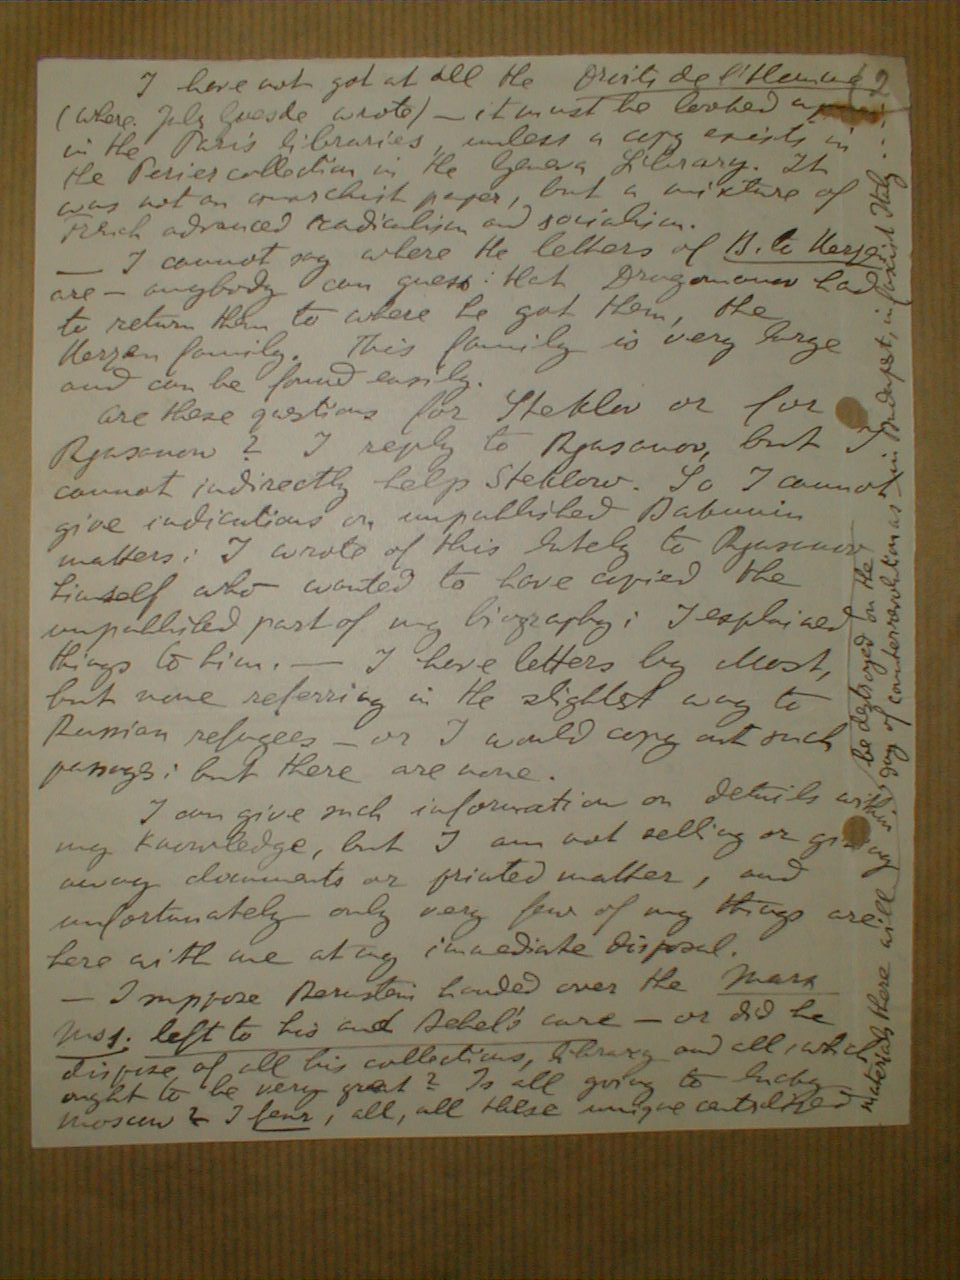 2
I have not got at all the Droits de l'Homme
(where July Guesde wrote) – it must be looked up
in the Paris libraries, unless a copy exists in
the Perier collection in the Geneva Library. It
was not an anarchist paper, but a mixture of
French advanced radicalism and socialism.
— I cannot say where the letters of B. to Herzen
are – anybody can guess: that Dragomanov had
to return them to where he got them, the
Herzen family. This family is very large
and can be found easily.
Are these questions for Steklov or for
Rjasanow? I reply to Rjasanov, but I
cannot indirectly help Steklow. So I cannot
give indications on unpublished Bakunin
matters: I wrote of this lately to Rjasanow
himself who wanted to have copied the
unpublished part of my biography; I explained
things to him. — I have letters by Most,
but none referring in the slightest way to
Russian refugees – or I would copy out such
passages: but there are none.
I can give such information on details within
my knowledge, but I am not selling or giving
away documents or printed matter, and
unfortunately only very few of my things are
here with me at my immediate disposal.
— I suppose Bernstein handed over the Marx
mss. left to his and Bebel's care – or did he
dispose of all his collections, library and all, which
ought to be very great? Is all going to
Moscow? I fear, all, all these unique centralized
materials there will be destroyed on the
day of counterrevolution as in Budapest, in fascist Italy...